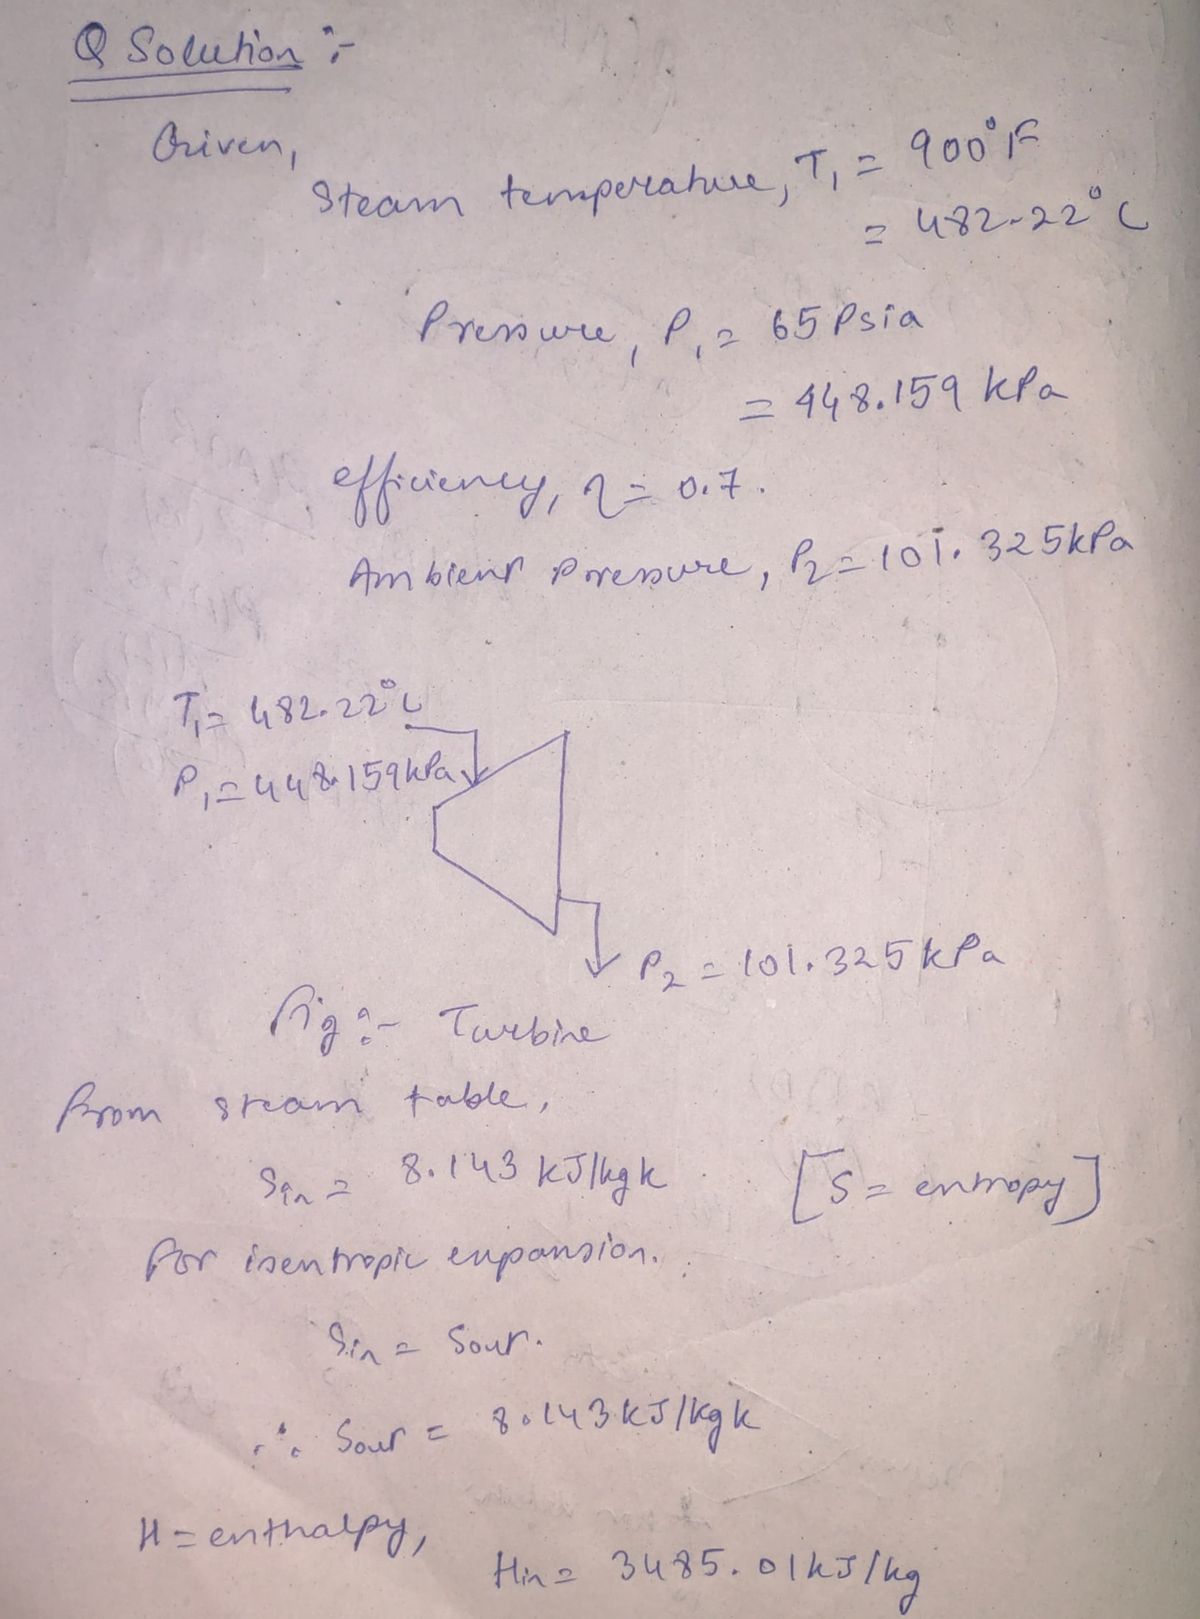 Q Solution :-
Given,
Steam temperature, T₁ = 900°F
= 482.22°C
Pressure, P₁ = 65 Psia
= 448.159 kPa
efficiency, η = 0.7.
Ambient Pressure, P₂ = 101.325kPa
T₁ = 482.22°C
P₁ = 448.159kPa
P₂ = 101.325 kPa
Fig :- Turbine
From steam table,
Sin = 8.143 kJ/kgk [S = entropy]
For isentropic expansion.
Sin = Sout.
∴ Sout = 8.143 kJ/kgk
H = enthalpy,
Hin = 3485.01kJ/kg